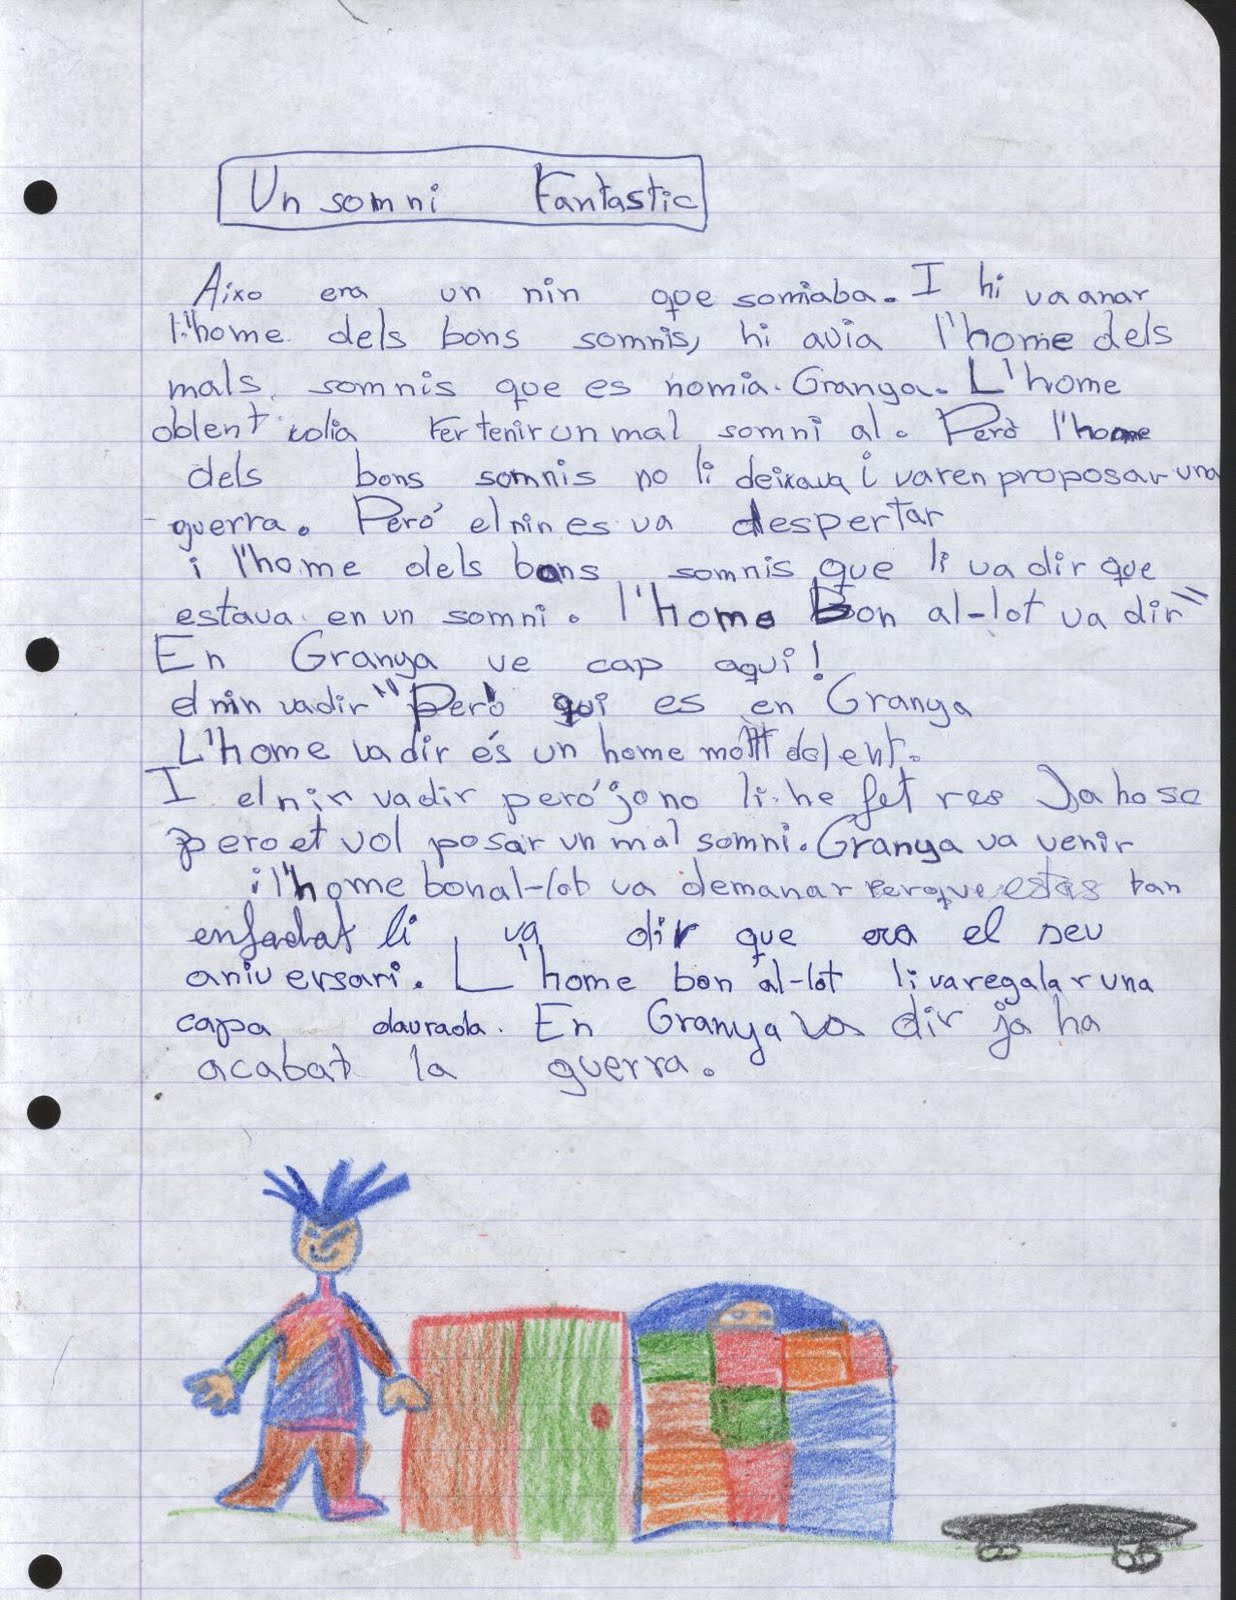 Un somni Fantastic
Aixo era un nin que somiaba. I hi va anar
l'home dels bons somnis, hi avia l'home dels
mals somnis que es nomia Granya. L'home
volia fer tenir un mal somni al. Però l'home
dels bons somnis no li deixava i varen proposar una
guerra. Peró el nin es va despertar
i l'home dels bons somnis que li va dir que
estava en un somni. l'home Bon al-lot va dir"
En Granya ve cap aqui!
el nin va dir "Però qui es en Granya
L'home va dir és un home molt dolent.
I el nin va dir peró jo no li he fet res Ja ho se
pero et vol posar un mal somni. Granya va venir
i l'home bon al-lot va demanar perque estas tan
enfadat li va dir que era el seu
aniversari. L'home bon al-lot li va regalar una
capa daurada. En Granya va dir ja ha
acabat la guerra.